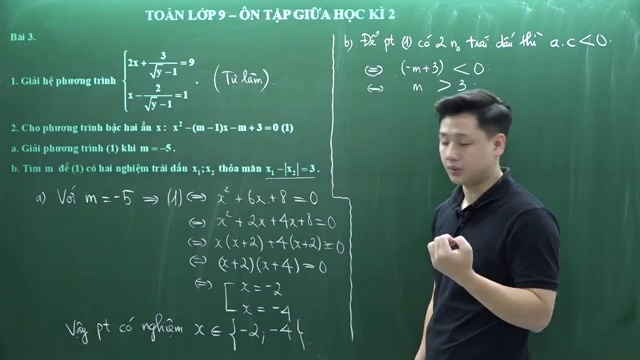 TOÁN LỚP 9 – ÔN TẬP GIỮA HỌC KÌ 2
Bài 3.
1. Giải hệ phương trình { 2x + 3/(√y − 1) = 9
x − 2/(√y − 1) = 1 . (Tự làm).
2. Cho phương trình bậc hai ẩn x : x² − (m − 1)x − m + 3 = 0 (1)
a. Giải phương trình (1) khi m = −5 .
b. Tìm m để (1) có hai nghiệm trái dấu x₁ ; x₂ thỏa mãn x₁ − |x₂| = 3 .
a) Với m = −5 ⇒ (1) ⇔ x² + 6x + 8 = 0
⇔ x² + 2x + 4x + 8 = 0
⇔ x(x+2) + 4(x+2) = 0
⇔ (x+2)(x+4) = 0
⇔ [ x = −2
x = −4
Vậy pt có nghiệm x ∈ {−2, −4}.
b) Để pt (1) có 2 n₀ trái dấu thì a.c < 0.
⇔ (−m+3) < 0
⇔ m > 3